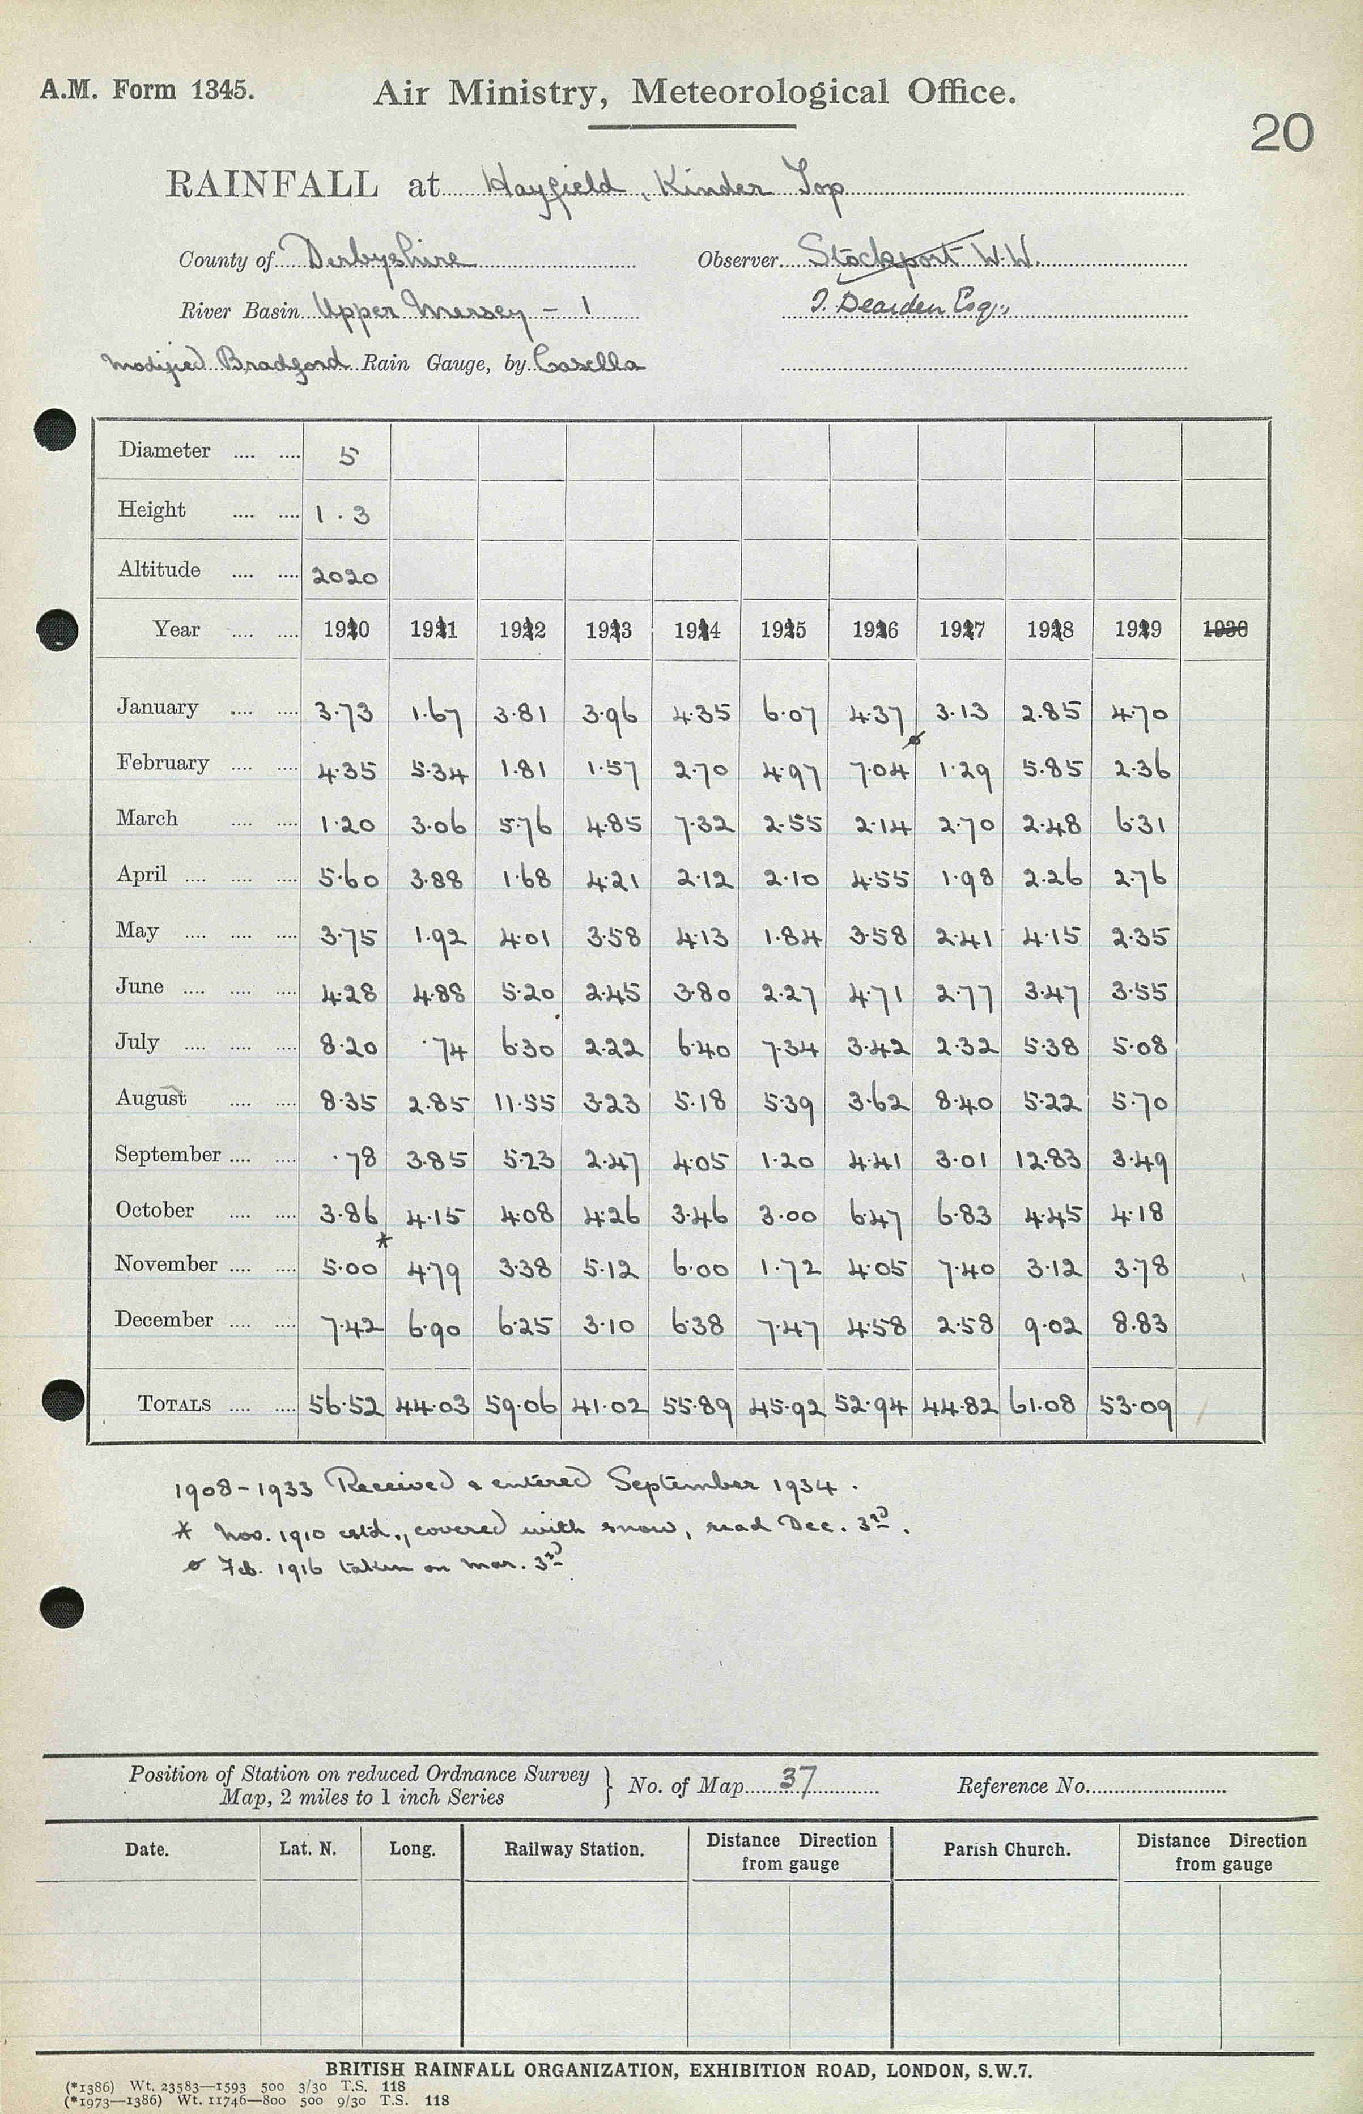 A.M. Form 1345.
Air Ministry, Meteorological Office.
20
RAINFALL at Hayfield, Kinder Top
County of Derbyshire Observer Stockport W.W.
River Basin Upper Mersey - 1 J. Dearden Esq.,
Modified Bradford Rain Gauge, by Casella
Diameter 5
Height 1.3
Altitude 2020
Year 1910 1911 1912 1913 1914 1915 1916 1917 1918 1919 1930
January 3.73 1.67 3.81 3.96 4.35 6.07 4.37 3.13 2.85 4.70
February 4.35 5.34 1.81 1.57 2.70 4.97 7.04ø 1.29 5.85 2.36
March 1.20 3.06 5.76 4.85 7.32 2.55 2.14 2.70 2.48 6.31
April 5.60 3.88 1.68 4.21 2.12 2.10 4.55 1.98 2.26 2.76
May 3.75 1.92 4.01 3.58 4.13 1.84 3.58 2.41 4.15 2.35
June 4.28 4.88 5.20 2.45 3.80 2.27 4.71 2.77 3.47 3.55
July 8.20 .74 6.30 2.22 6.40 7.34 3.42 2.32 5.38 5.08
August 8.35 2.85 11.55 3.23 5.18 5.39 3.62 8.40 5.22 5.70
September .78 3.85 5.23 2.47 4.05 1.20 4.41 3.01 12.83 3.49
October 3.86 4.15 4.08 4.26 3.46 3.00 6.47 6.83 4.45 4.18
November 5.00* 4.79 3.38 5.12 6.00 1.72 4.05 7.40 3.12 3.78
December 7.42 6.90 6.25 3.10 6.38 7.47 4.58 2.58 9.02 8.83
TOTALS 56.52 44.03 59.06 41.02 55.89 45.92 52.94 44.82 61.08 53.09
1908-1933 Received & entered September 1934.
* Nov. 1910 estd., covered with snow, read Dec. 3rd.
ø Feb. 1916 taken on Mar. 3rd
Position of Station on reduced Ordnance Survey
Map, 2 miles to 1 inch Series } No. of Map 37 Reference No.
Date. Lat. N. Long. Railway Station. Distance Direction from gauge Parish Church. Distance Direction from gauge
BRITISH RAINFALL ORGANIZATION, EXHIBITION ROAD, LONDON, S.W.7.
(*1386) Wt. 23583—1593 500 3/30 T.S. 118
(*1973—1386) Wt. 11746—800 500 9/30 T.S. 118